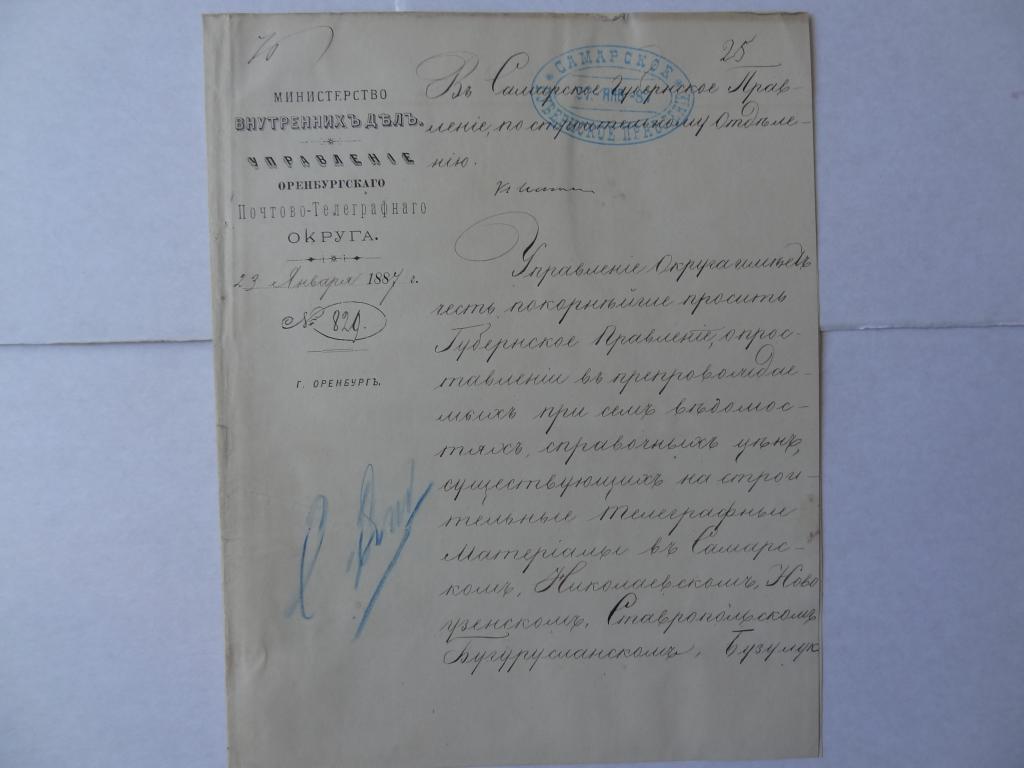 70
25
МИНИСТЕРСТВО
ВНУТРЕННИХЪ ДѢЛЪ.
УПРАВЛЕНІЕ
ОРЕНБУРГСКАГО
Почтово-Телеграфнаго
ОКРУГА.
23 Января 1887 г.
№ 829.
Г. ОРЕНБУРГЪ.
САМАРСКОЕ
ГУБЕРНСКОЕ ПРАВЛЕНІЕ
Въ Самарское Губернское Прав-
леніе, по строительному Отдѣле-
нію.
Управленіе Округа имѣетъ
честь покорнѣйше просить
Губернское Правленіе, о прос-
тавленіи въ препровождае-
мыхъ при семъ вѣдомос-
тяхъ, справочныхъ цѣнъ,
существующихъ на строи-
тельные телеграфные
Матеріалы въ Самарс-
комъ, Николаевскомъ, Ново
узенскомъ, Ставропольскомъ
Бугурусланскомъ, Бузулук